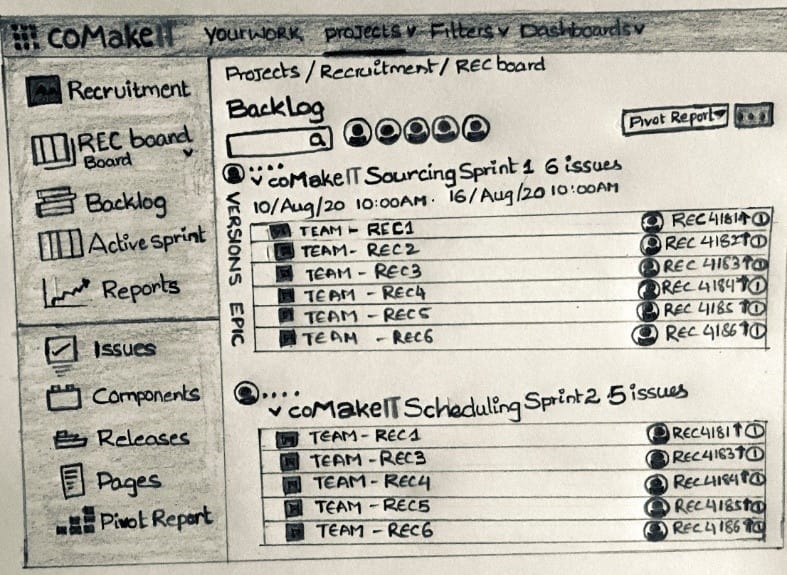 coMakeIT YOUR WORK projects Filters Dashboards
Recruitment
REC board
Board
Backlog
Active sprint
Reports
Issues
Components
Releases
Pages
Pivot Report
Projects / Recruitment / REC board
Backlog
Pivot Report
coMakeIT Sourcing Sprint 1 6 issues
10/Aug/20 10:00AM. 16/Aug/20 10:00AM
VERSIONS EPIC
TEAM - REC1 REC 4181
TEAM - REC2 REC 4182
TEAM - REC3 REC 4183
TEAM - REC4 REC 4184
TEAM - REC5 REC 4185
TEAM - REC6 REC 4186
coMakeIT Scheduling Sprint 2 5 issues
TEAM - REC1 REC4181
TEAM - REC3 REC4183
TEAM - REC4 REC4184
TEAM - REC5 REC4185
TEAM - REC6 REC4186